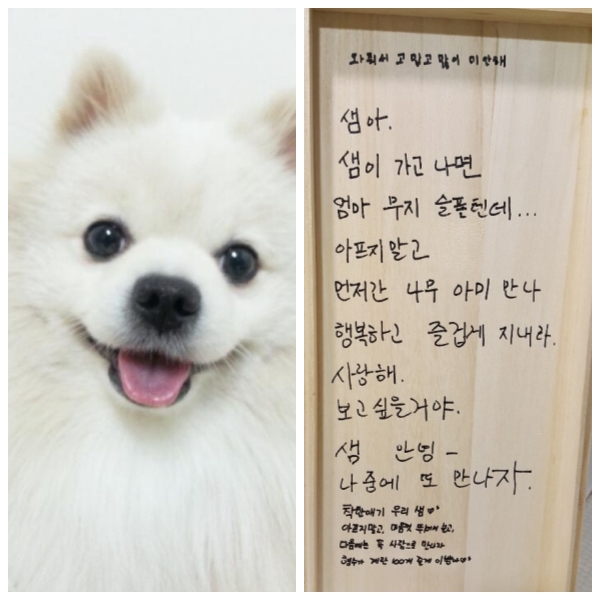 와줘서 고맙고 많이 미안해
샘아.
샘이 가고 나면
엄마 무지 슬플텐데...
아프지말고
먼저간 나무 아미 만나
행복하고 즐겁게 지내라.
사랑해.
보고싶을거야.
샘 안녕-
나중에 또 만나자.
착한애기 우리 샘
아프지말고, 마음껏 놀고,
다음에는 꼭 사람으로 만나자
계란 100개 줄게